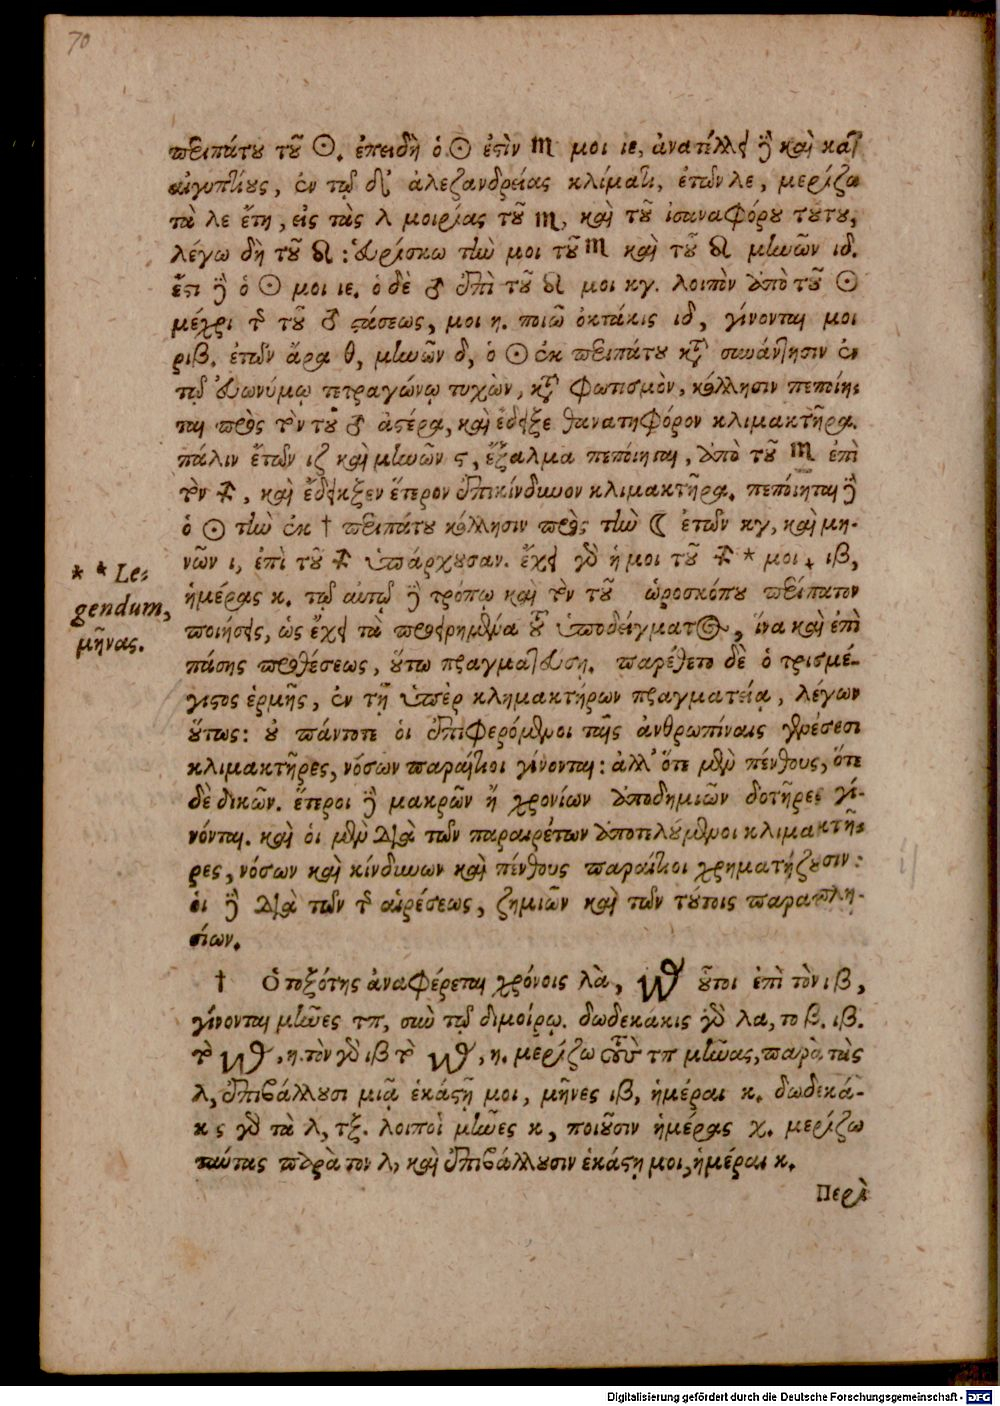 70
περιπάτου τοῦ ☉. ἐπειδὴ ὁ ☉ ἐστὶν ♏ μοι ιε, ἀνατέλλει δὲ καὶ κατ'
αἰγυπτίους, ἐν τῷ δι' ἀλεξανδρείας κλίματι, ἐτῶν λε, μερίζω
τὰ λε ἔτη, εἰς τὰς λ μοιρίας τοῦ ♏, καὶ τοῦ ἰσαναφόρου τούτου,
λέγω δὴ τοῦ ♌ : εὑρίσκω τὴν μοι τοῦ ♏ καὶ τοῦ ♌ μηνῶν ιδ.
ἔστι δὲ ὁ ☉ μοι ιε. ὁ δὲ ♂ ἐπὶ τοῦ ♌ μοι κγ. λοιπὸν ἀπὸ τοῦ ☉
μέχρι τῆς τοῦ ♂ στάσεως, μοι η. ποιῶ ὀκτάκις ιδ, γίνονται μοι
ριβ. ἐτῶν ἄρα θ, μηνῶν δ, ὁ ☉ ἐκ περιπάτου κατὰ συνάντησιν ἐν
τῷ εὐωνύμῳ τετραγώνῳ τυχὼν, κατὰ φωτισμὸν, κόλλησιν πεποίη-
ται πρὸς τὸν τοῦ ♂ ἀστέρα, καὶ ἔδειξε θανατηφόρον κλιμακτῆρα.
πάλιν ἐτῶν ιζ καὶ μηνῶν ϛ, ἔξαλμα πεποίηται, ἀπὸ τοῦ ♏ ἐπὶ
τὸν ♐, καὶ ἔδειξεν ἕτερον ἐπικίνδυνον κλιμακτῆρα. πεποίηται δὲ
ὁ ☉ τὴν ἐκ † περιπάτου κόλλησιν πρὸς τὴν ☾ ἐτῶν κγ, καὶ μη-
νῶν ι, ἐπὶ τοῦ ♐ ὑπάρχουσαν. ἔχει γὰρ ἡ μοι τοῦ ♐ * μοι, ιβ,
* * Le-
gendum,
μῆνας.
ἡμέρας κ. τῷ αὐτῷ δὲ τρόπῳ καὶ τὸν τοῦ ὡροσκόπου περίπατον
ποιήσεις, ὡς ἔχει τὰ προειρημένα τοῦ ὑποδείγματος, ἵνα καὶ ἐπὶ
πάσης προθέσεως, οὕτω πραγματεύσῃ. παρέθετο δὲ ὁ τρισμέ-
γιστος ἑρμῆς, ἐν τῇ ὑπὲρ κλημακτήρων πραγματείᾳ, λέγων
οὕτως: οὐ πάντοτε οἱ ἐπιφερόμενοι ταῖς ἀνθρωπίναις γενέσεσι
κλιμακτῆρες, νόσων παραίτιοι γίνονται: ἀλλ' ὅτε μὲν πένθους, ὅτε
δὲ δικῶν. ἕτεροι δὲ μακρῶν ἢ χρονίων ἀποδημιῶν δοτῆρες γί-
νόνται. καὶ οἱ μὲν διὰ τῶν παραιρέτων ἀποτελούμενοι κλιμακτῆ-
ρες, νόσων καὶ κίνδυνων καὶ πένθους παραίτιοι χρηματήζουσιν:
οἱ δὲ διὰ τῶν τῆς αἱρέσεως, ζημιῶν καὶ τῶν τούτοις παραπλη-
σίων.
† Ὁ τοξότης ἀναφέρεται χρόνοις λὰ, οὗτοι ἐπὶ τὸν ιβ,
γίνονται μῆνες τπ, σὺν τῷ διμοίρῳ. δωδεκάκις γὰρ λα, το β. ιβ.
τὸ , η. τὸν γὰρ ιβ τὸ , η. μερίζω τοὺς τπ μῆνας, παρὰ τὰς
λ, ἐπιβάλλουσι μιᾷ ἑκάστῃ μοι, μῆνες ιβ, ἡμέραι κ. δωδεκά-
κις γὰρ τὰ λ, τξ. λοιποὶ μῆνες κ, ποιοῦσιν ἡμέρας χ. μερίζω
ταύτας παρὰ τον λ, καὶ ἐπιβάλλουσιν ἑκάστῃ μοι, ἡμέραι κ.
Περὶ
Digitalisierung gefördert durch die Deutsche Forschungsgemeinschaft - DFG